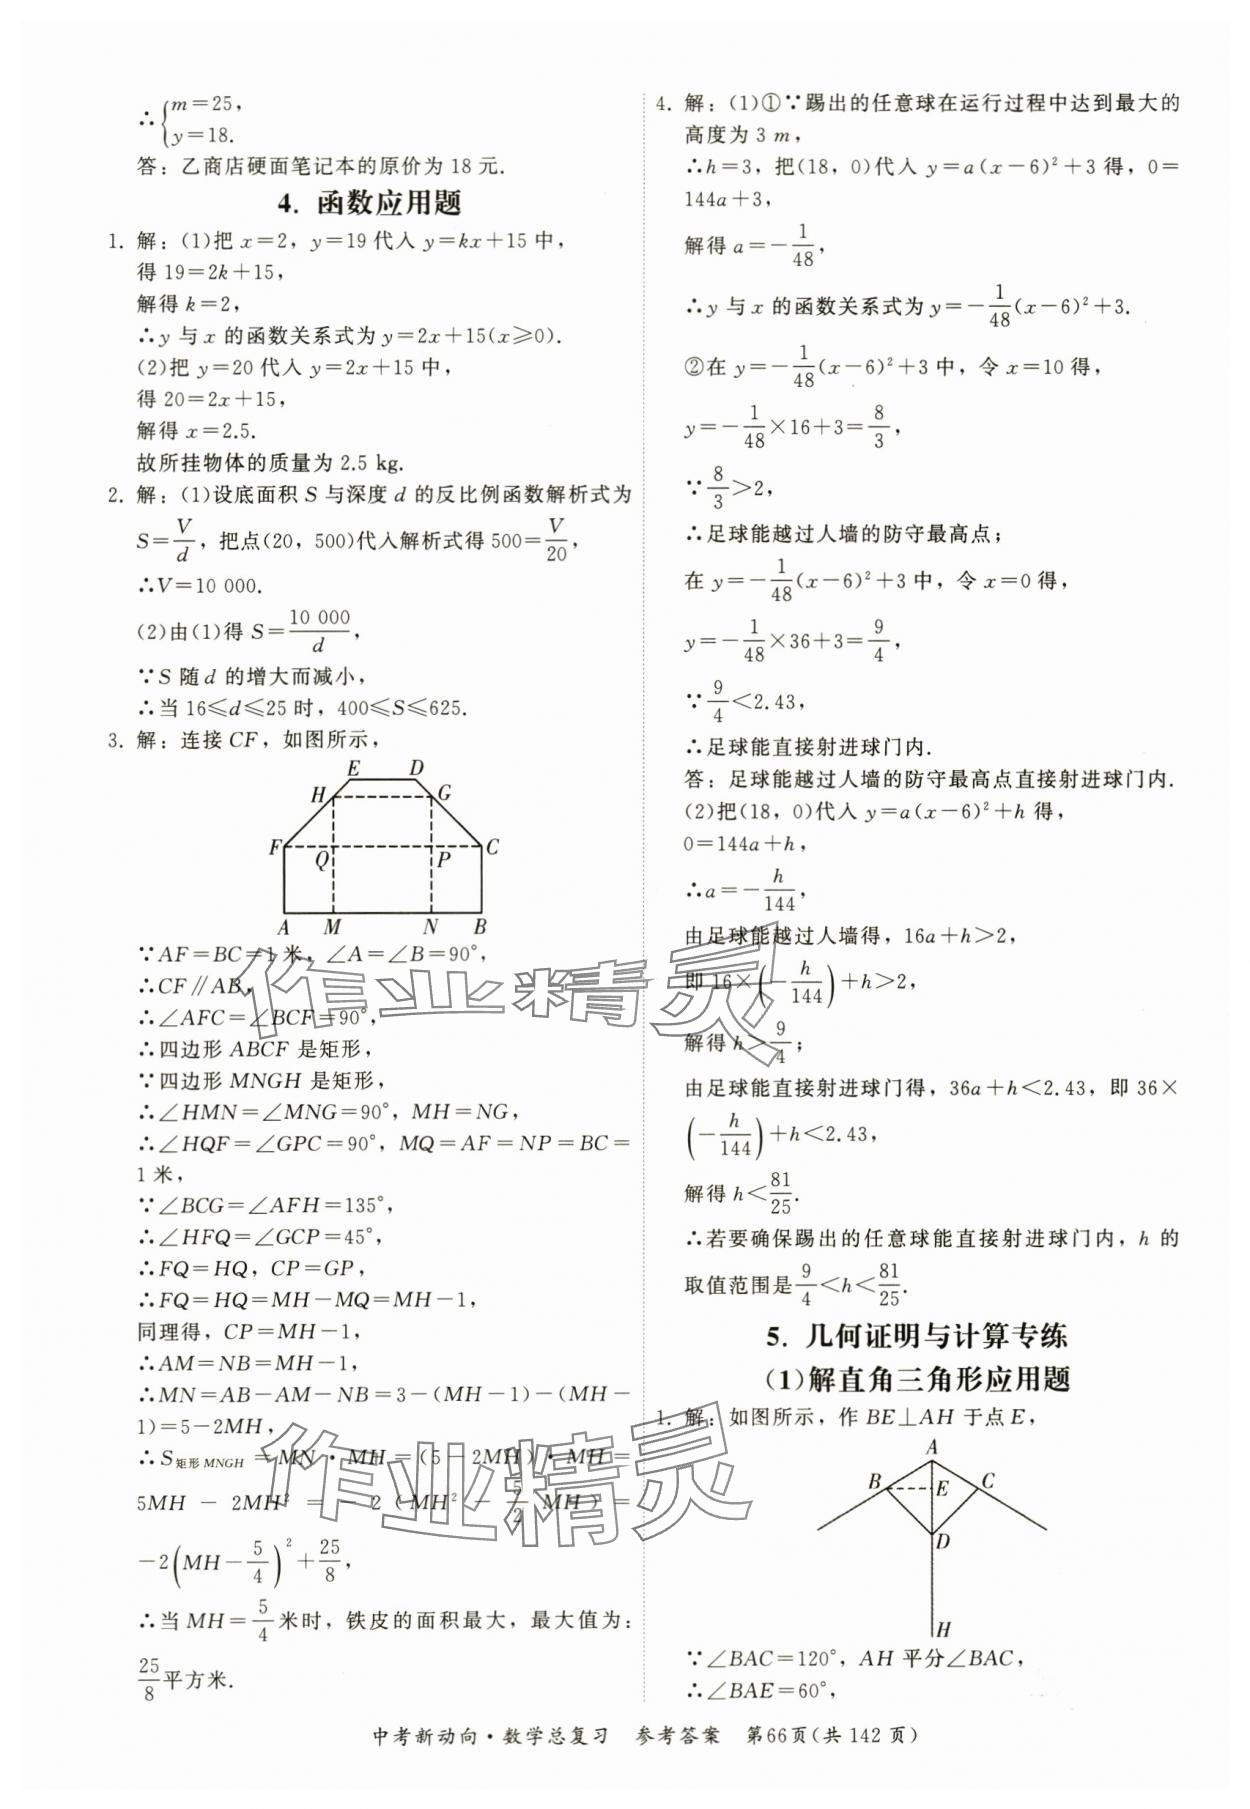 ∴{m=25,
y=18.
答：乙商店硬面笔记本的原价为 18 元.
4. 函数应用题
1. 解：(1)把 x=2，y=19 代入 y=kx+15 中，
得 19=2k+15，
解得 k=2，
∴y 与 x 的函数关系式为 y=2x+15(x≥0).
(2)把 y=20 代入 y=2x+15 中，
得 20=2x+15，
解得 x=2.5.
故所挂物体的质量为 2.5 kg.
2. 解：(1)设底面积 S 与深度 d 的反比例函数解析式为
S=V/d，把点(20，500)代入解析式得 500=V/20，
∴V=10 000.
(2)由(1)得 S=10 000/d，
∵S 随 d 的增大而减小，
∴当 16≤d≤25 时，400≤S≤625.
3. 解：连接 CF，如图所示，
E D
H G
F Q P C
A M N B
∵AF=BC=1 米，∠A=∠B=90°，
∴CF∥AB，
∴∠AFC=∠BCF=90°，
∴四边形 ABCF 是矩形，
∵四边形 MNGH 是矩形，
∴∠HMN=∠MNG=90°，MH=NG，
∴∠HQF=∠GPC=90°，MQ=AF=NP=BC=
1 米，
∵∠BCG=∠AFH=135°，
∴∠HFQ=∠GCP=45°，
∴FQ=HQ，CP=GP，
∴FQ=HQ=MH-MQ=MH-1，
同理得，CP=MH-1，
∴AM=NB=MH-1，
∴MN=AB-AM-NB=3-(MH-1)-(MH-
1)=5-2MH，
∴S矩形MNGH=MN·MH=(5-2MH)·MH=
5MH-2MH²=-2(MH²-5/2 MH)=
-2(MH-5/4)²+25/8，
∴当 MH=5/4米时，铁皮的面积最大，最大值为：
25/8平方米.
4. 解：(1)①∵踢出的任意球在运行过程中达到最大的
高度为 3 m，
∴h=3，把(18，0)代入 y=a(x-6)²+3 得，0=
144a+3，
解得 a=-1/48，
∴y 与 x 的函数关系式为 y=-1/48(x-6)²+3.
②在 y=-1/48(x-6)²+3 中，令 x=10 得，
y=-1/48×16+3=8/3，
∵8/3>2，
∴足球能越过人墙的防守最高点；
在 y=-1/48(x-6)²+3 中，令 x=0 得，
y=-1/48×36+3=9/4，
∵9/4<2.43，
∴足球能直接射进球门内.
答：足球能越过人墙的防守最高点直接射进球门内.
(2)把(18，0)代入 y=a(x-6)²+h 得，
0=144a+h，
∴a=-h/144，
由足球能越过人墙得，16a+h>2，
即 16×(-h/144)+h>2，
解得 h>9/4；
由足球能直接射进球门得，36a+h<2.43，即 36×
(-h/144)+h<2.43，
解得 h<81/25.
∴若要确保踢出的任意球能直接射进球门内，h 的
取值范围是9/4<h<81/25.
5. 几何证明与计算专练
(1)解直角三角形应用题
1. 解：如图所示，作 BE⊥AH 于点 E，
A
B E C
D
H
∵∠BAC=120°，AH 平分∠BAC，
∴∠BAE=60°，
中考新动向·数学总复习 参考答案 第66页(共 142 页)
作业精灵
作业精灵